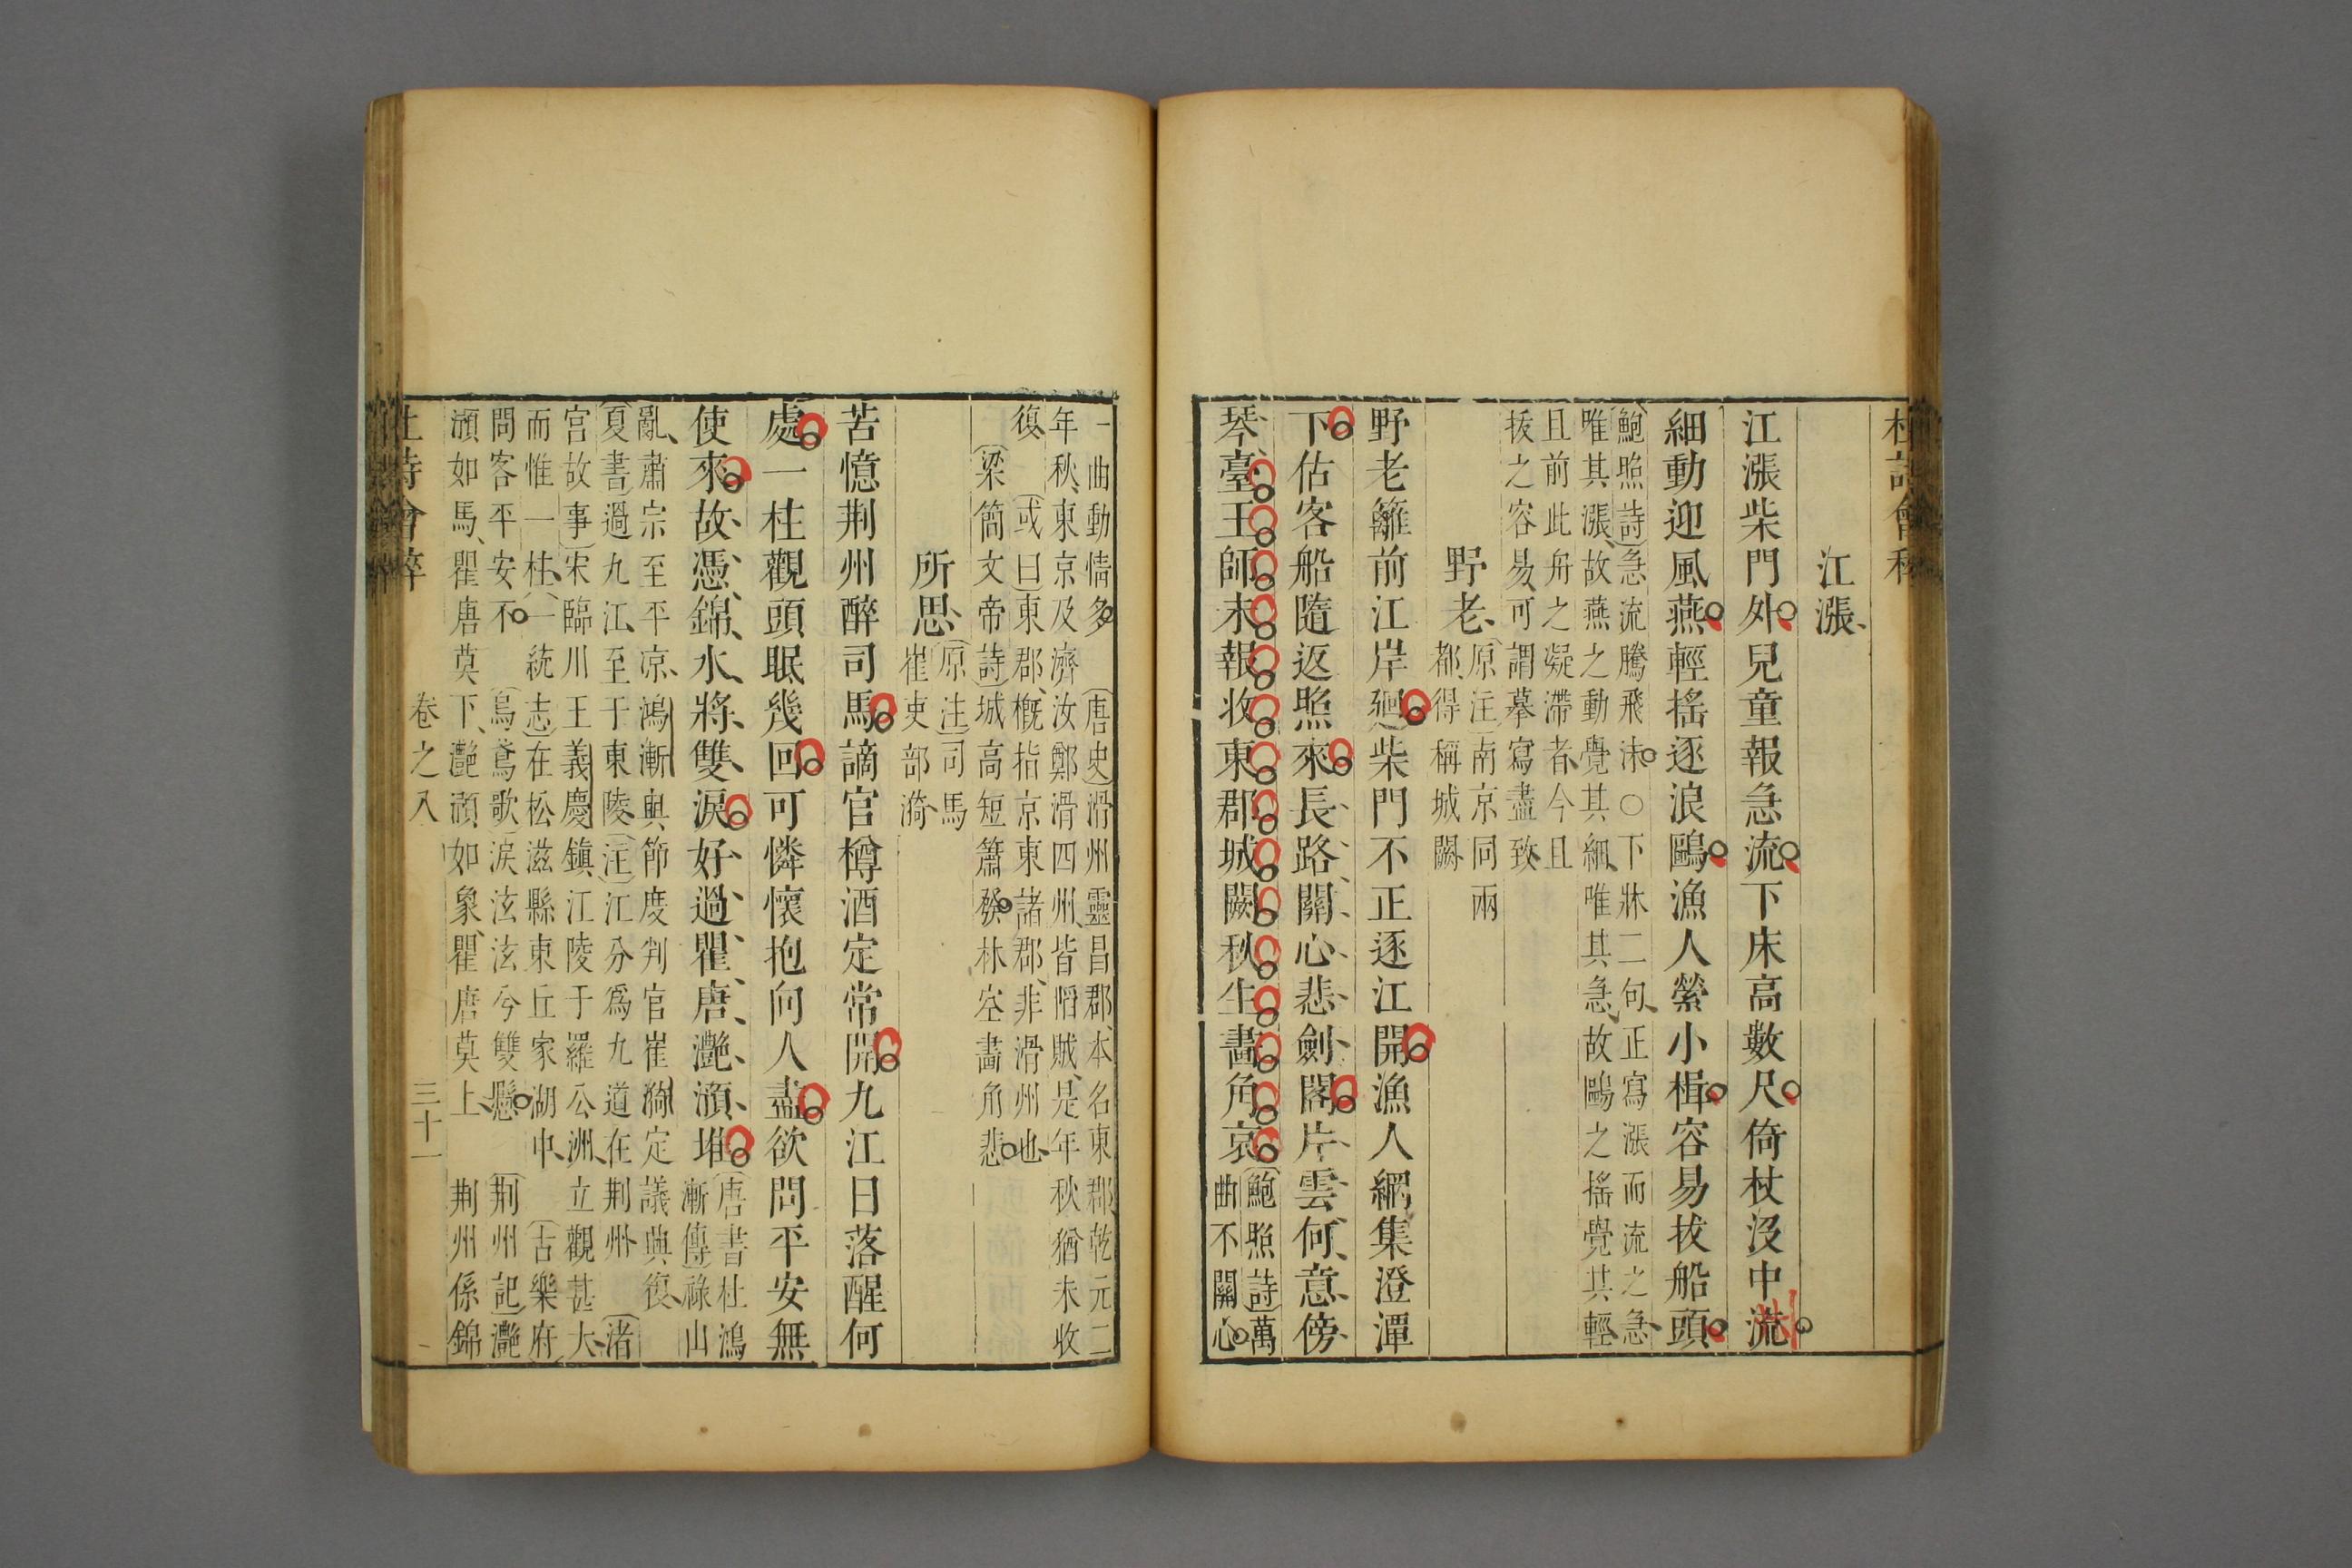 杜詩會稡
江漲
江漲柴門外兒童報急流下床高數尺倚杖沒中流
細動迎風燕輕搖逐浪鷗漁人縈小楫容易拔船頭
鮑照詩急流騰飛沫○下牀二句正寫漲而流之急
唯其漲故燕之動覺其細唯其急故鷗之搖覺其輕
且前此舟之凝滯者今且
拔之容易可謂摹寫盡致
野老
原注南京同兩
都得稱城闕
野老籬前江岸廻柴門不正逐江開漁人網集澄潭
下估客船隨返照來長路關心悲劍閣片雲何意傍
琴臺王師未報收東郡城闕秋生畫角哀
鮑照詩萬
曲不關心
一曲動情多
唐史滑州靈昌郡本名東郡乾元二
年秋東京及濟汝鄭滑四州皆陷賊是年秋猶未收
復
或曰東郡概指京東諸郡非滑州也
梁簡文帝詩城高短簫發林空畫角悲
所思
原注司馬
崔吏部漪
苦憶荆州醉司馬謫官樽酒定常開九江日落醒何
處一柱觀頭眠幾回可憐懷抱向人盡欲問平安無
使來故憑錦水將雙淚好過瞿唐灔澦堆
唐書杜鴻
漸傳祿山
亂肅宗至平凉鴻漸與節度判官崔漪定議興復
渚
夏書過九江至于東陵注江分爲九道在荆州
宮故事宋臨川王義慶鎮江陵于羅公洲立觀甚大
而惟一柱一統志在松滋縣東丘家湖中
古樂府
問客平安不
烏鳶歌淚泫泫兮雙懸
荆州記灔
澦如馬瞿唐莫下灔澦如象瞿唐莫上
荆州係錦
杜詩會稡
卷之八
三十一